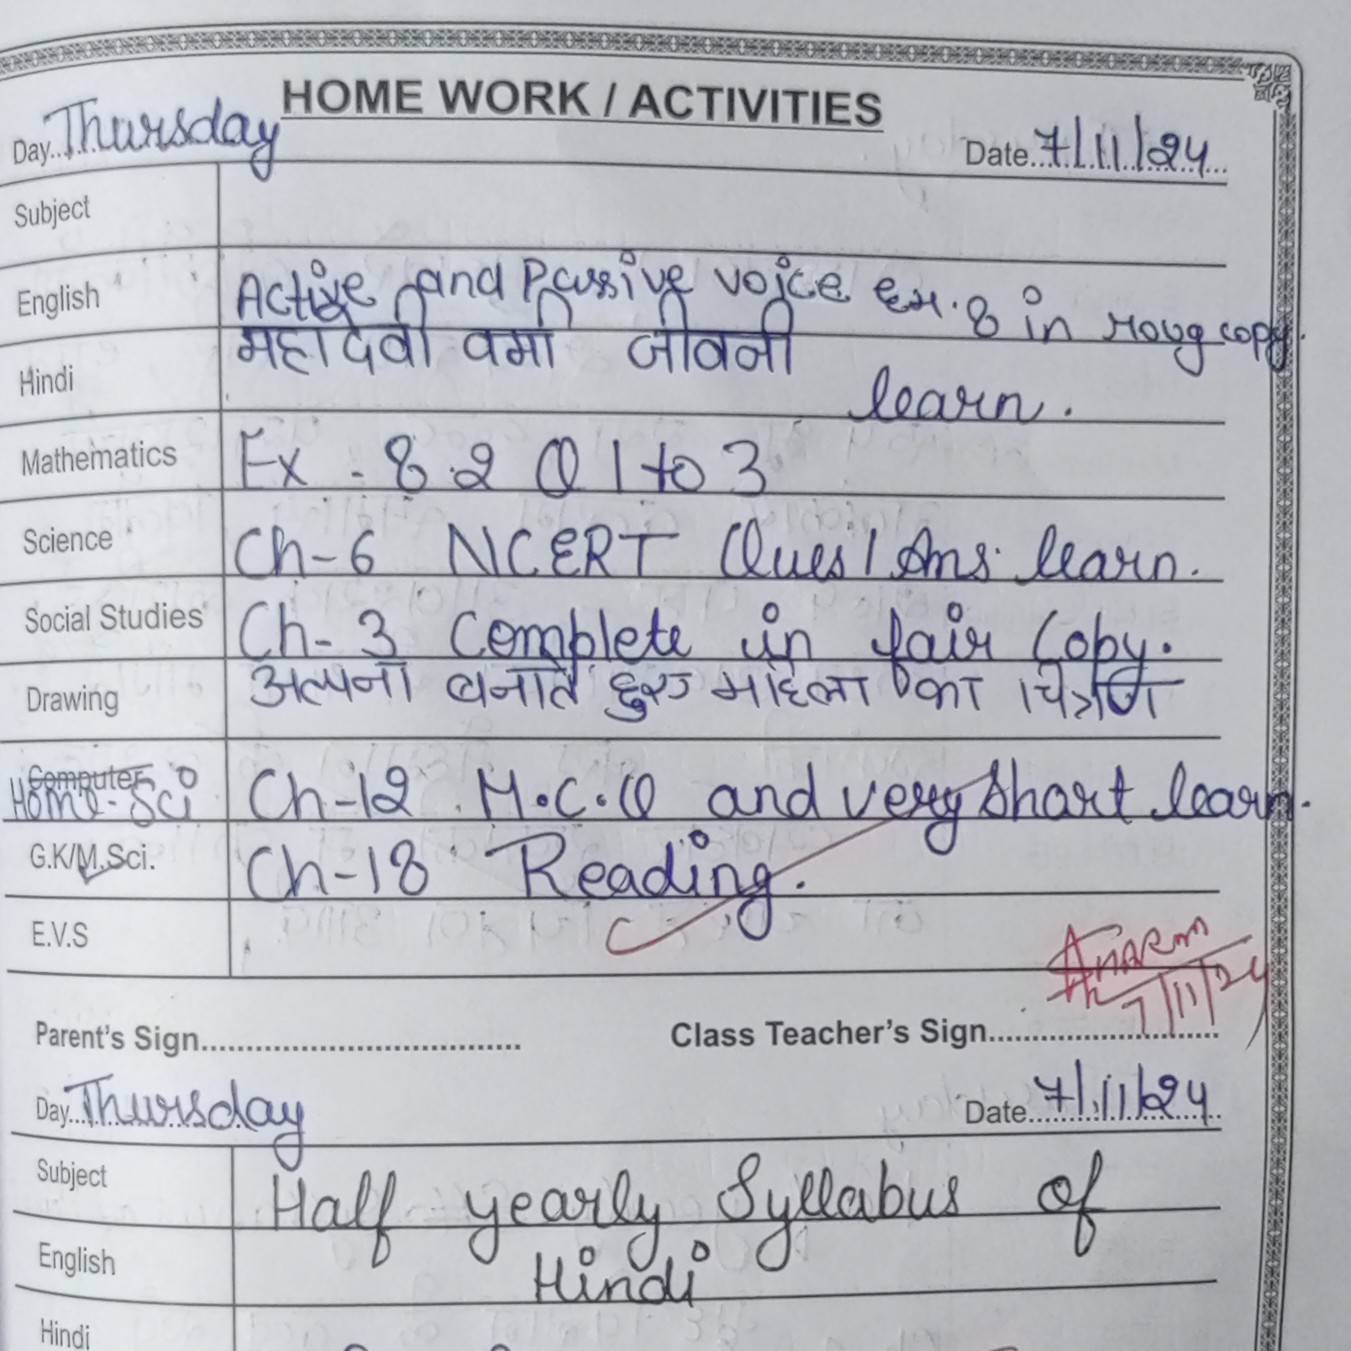 HOME WORK / ACTIVITIES
Day..Thursday Date..7/11/24
Subject
English Active and Passive voice Ex. 8 in roug copy.
Hindi महादेवी वर्मा जीवनी learn.
Mathematics Ex - 8.2 Q 1 to 3
Science Ch-6 NCERT Ques/Ans. learn.
Social Studies Ch-3 Complete in fair Copy.
Drawing अल्पना बनाते हुए महिला का चित्रण
Computer Home-Sci Ch-12 M.C.Q and very short learn.
G.K/M.Sci. Ch-18 Reading.
E.V.S
Parent's Sign.................................. Class Teacher's Sign......................... 7/11/24
Day..Thursday Date..7/11/24
Subject Half yearly Syllabus of
English Hindi
Hindi